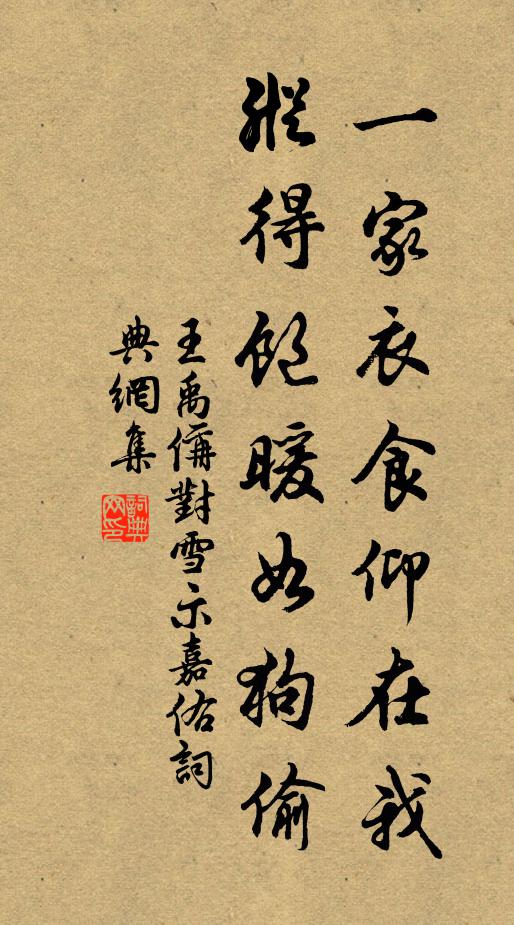 一家衣食仰在我
縱得飽暖如狗偷
王禹偁對雪示嘉佑詞
典網集
詞典
网印